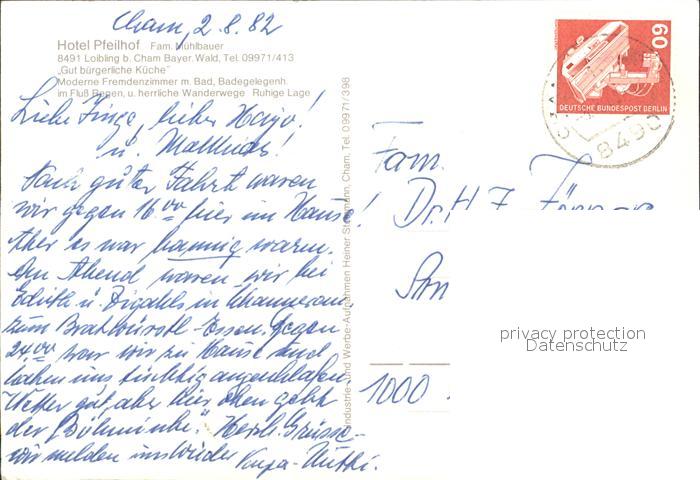 Cham, 2.8.82
Hotel Pfeilhof Fam. Mühlbauer
8491 Loibling b. Cham Bayer. Wald, Tel. 09971/413
„Gut bürgerliche Küche“
Moderne Fremdenzimmer m. Bad, Badegelegenh.
im Fluß Regen, u. herrliche Wanderwege Ruhige Lage
Liebe Inge, lieber Hajo!
u. Matthias!
Nach guter Fahrt waren
wir gegen 16.00 hier im Hause!
Aber es war warm.
Am Abend waren wir bei
Edith u. in
zum Bratwürstl-Essen. Gegen
24.00 war wir zu Hause und
haben uns tüchtig
Wetter gut, aber hier oben geht
der „Böhmische“. Herzl. Grüsse
wir melden uns wieder
Industrie- und Werbe-Aufnahmen Heiner Cham, Tel. 09971/398
60
DEUTSCHE BUNDESPOST BERLIN
8490
Fam.
Dr. H. J.
1000
privacy protection
Datenschutz